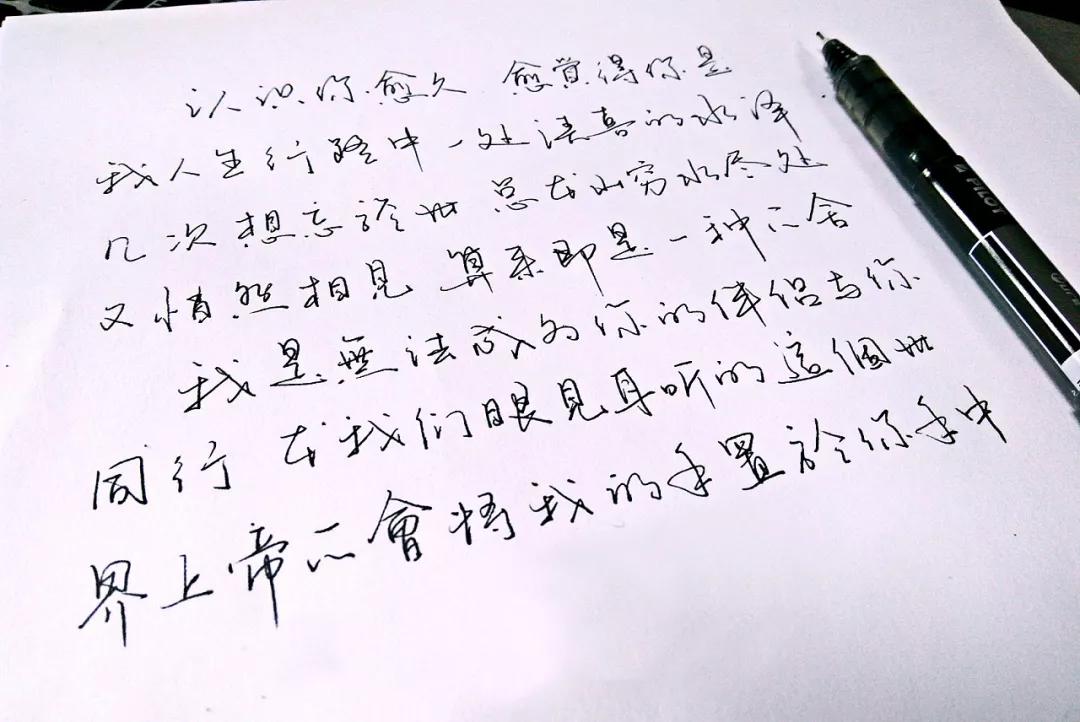 认识你愈久 愈觉得你是
我人生行路中一处清喜的水泽
几次想忘於世 总在山穷水尽处
又悄然相見 算来即是一种不舍
我是無法成为你的伴侣与你
同行 在我们眼見耳听的這個世
界上帝不會将我的手置於你手中
PILOT